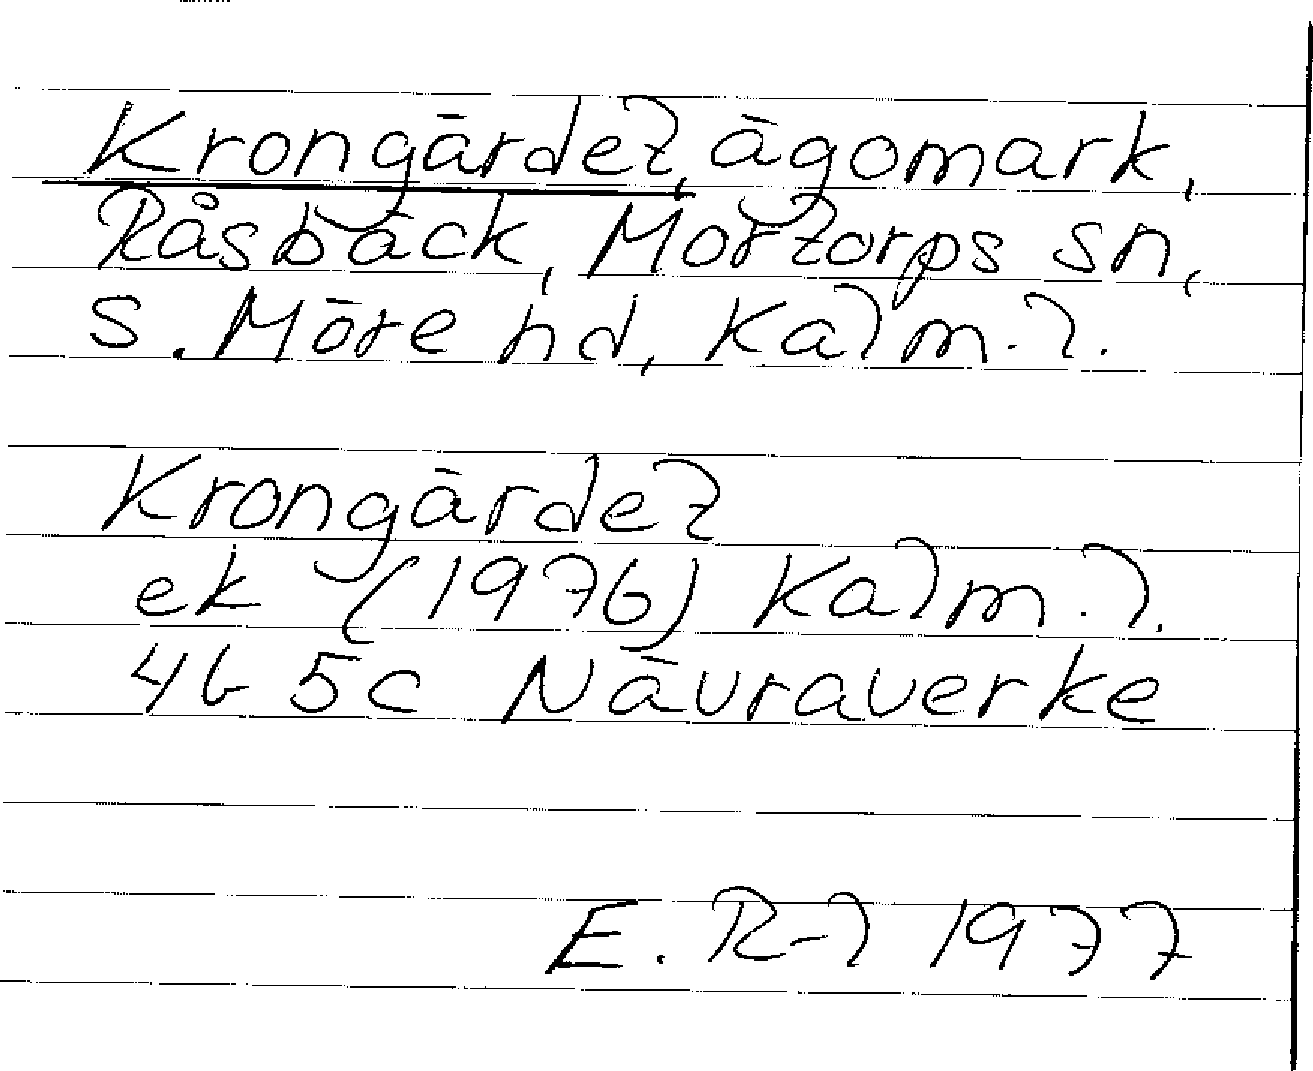 Krongärdet, ägomark,
Råsbäck, Mortorps sn,
S. Möre hd, Kalm. l.
Krongärdet
ek (1976) Kalm. l.
4G 5c Nävraverke
E. R-l 1977